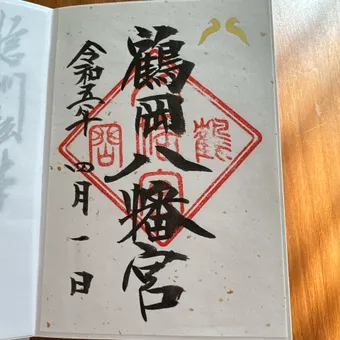 鶴岡八幡宮
令和五年四月一日